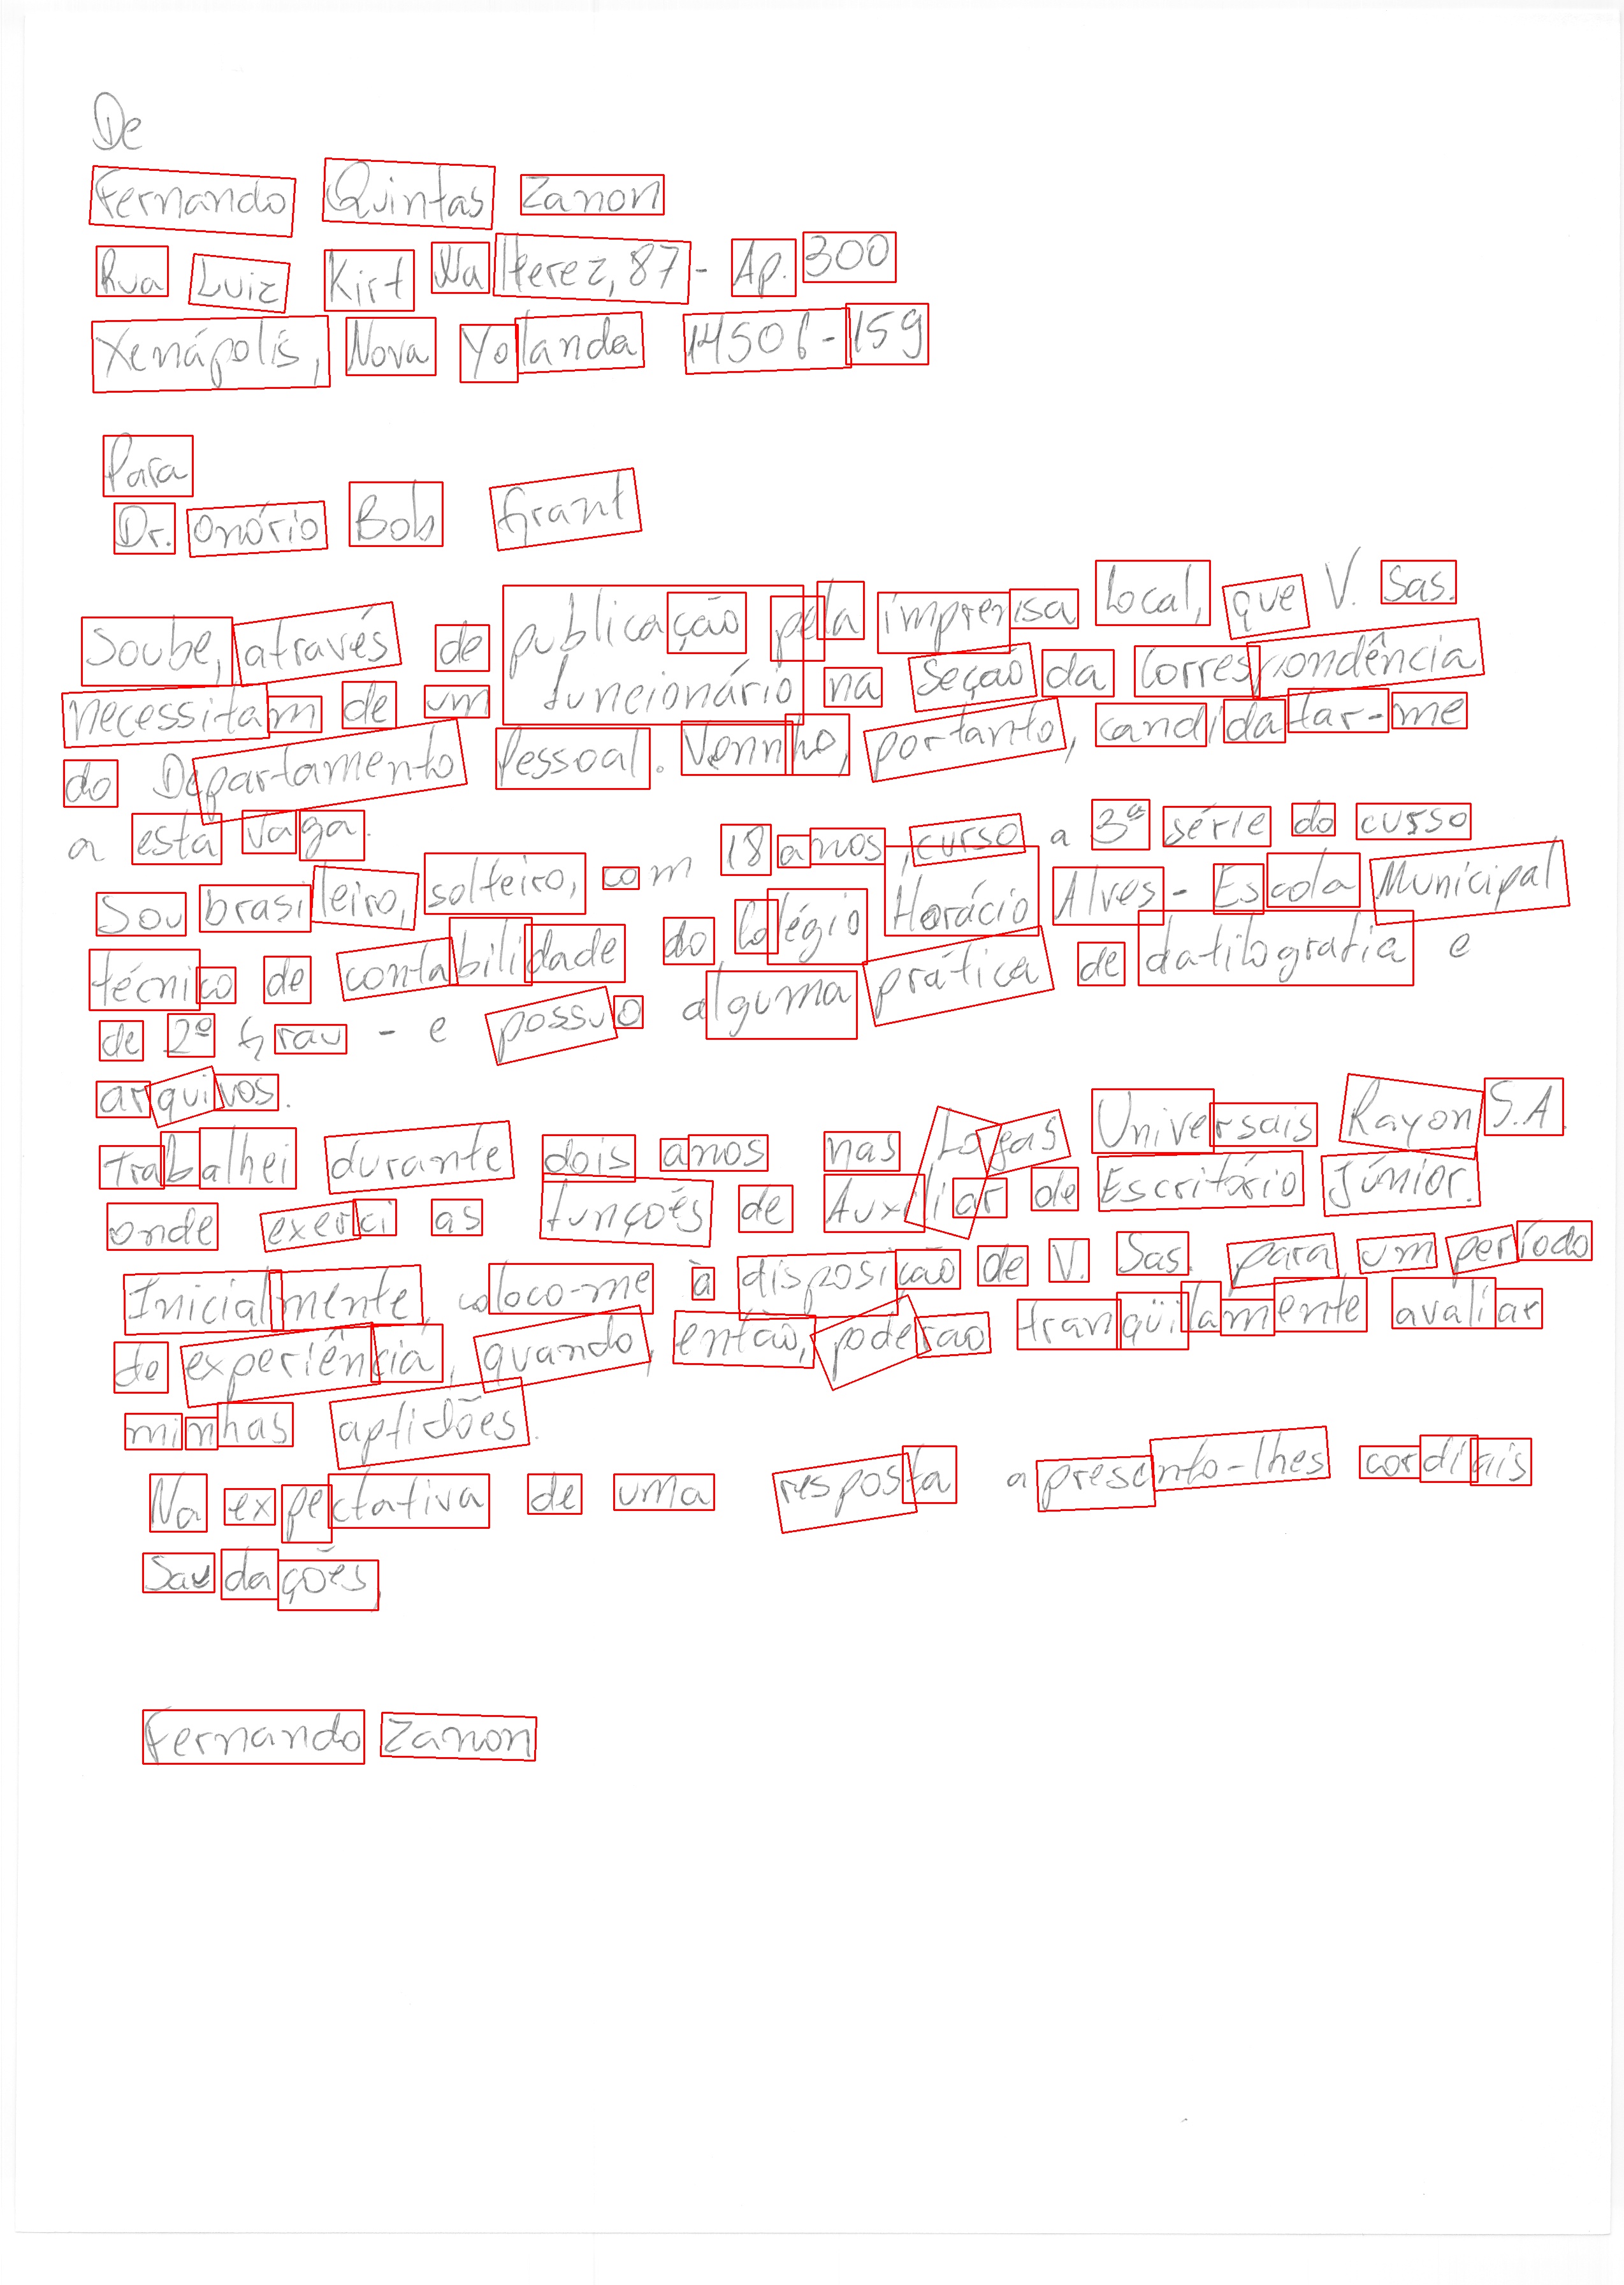 De
Fernando Quintas Zanon
Rua Luiz Kirt Walterez, 87 - Ap. 300
Xenápolis, Nova Yolanda 14506-159
Para
Dr. Onório Bob Grant
Soube, através de publicação pela imprensa local, que V. Sas.
necessitam de um funcionário na Seção da Correspondência
do Departamento Pessoal. Vennho, portanto, candidatar-me
a esta vaga.
Sou brasileiro, solteiro, com 18 anos, curso a 3ª série do curso
técnico de contabilidade do Colégio Horácio Alves - Escola Municipal
de 2º Grau - e possuo alguma prática de datilografia e
arquivos.
Trabalhei durante dois anos nas Logas Universais Rayon S.A.
onde exerci as funções de Auxiliar de Escritório Júnior.
Inicialmente, coloco-me à disposição de V. Sas. para um período
de experiência, quando, então, poderão tranqüilamente avaliar
minhas aptidões.
Na expectativa de uma resposta apresento-lhes cordiais
Saudações,
Fernando Zanon